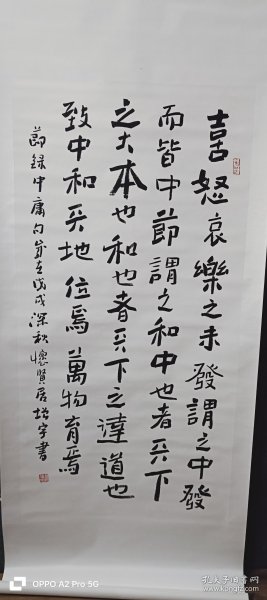 喜怒哀樂之未發謂之中發
而皆中節謂之和中也者天下
之大本也和也者天下之達道也
致中和天地位焉萬物育焉
節録中庸句歲在戊戌深秋懷賢居增宇書
OPPO A2 Pro 5G
孔夫子旧书网